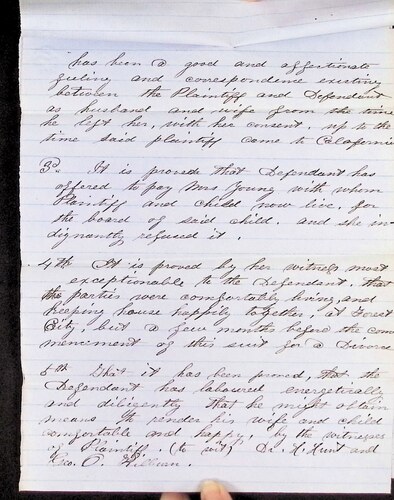 has been a good and affectionate
feeling and correspondence existing
between the Plaintiff and Defendant
as husband and wife from the time
he left her, with her consent, up to the
time said plaintiff came to Calafornia
3d. It is proved that Defendant has
offered to pay Mrs Young with whom
Plaintiff and child now live, for
the board of said child. and she in-
dignantly refused it.
4th It is proved by her witness most
exceptionable to the Defendant, that
the parties were comfortably living and
keeping house happily together, at Forest
City, but a few months before the com
mencment of this suit for a Divorce
5th That it has been proved, that the
Defendant has laboured energetically
and dilicently that he might obtain
means to render his wife and child
comfortable and happy, by the witnesses
of Plaintiff. (to wit) Dr. H. Hunt and
Geo. O.